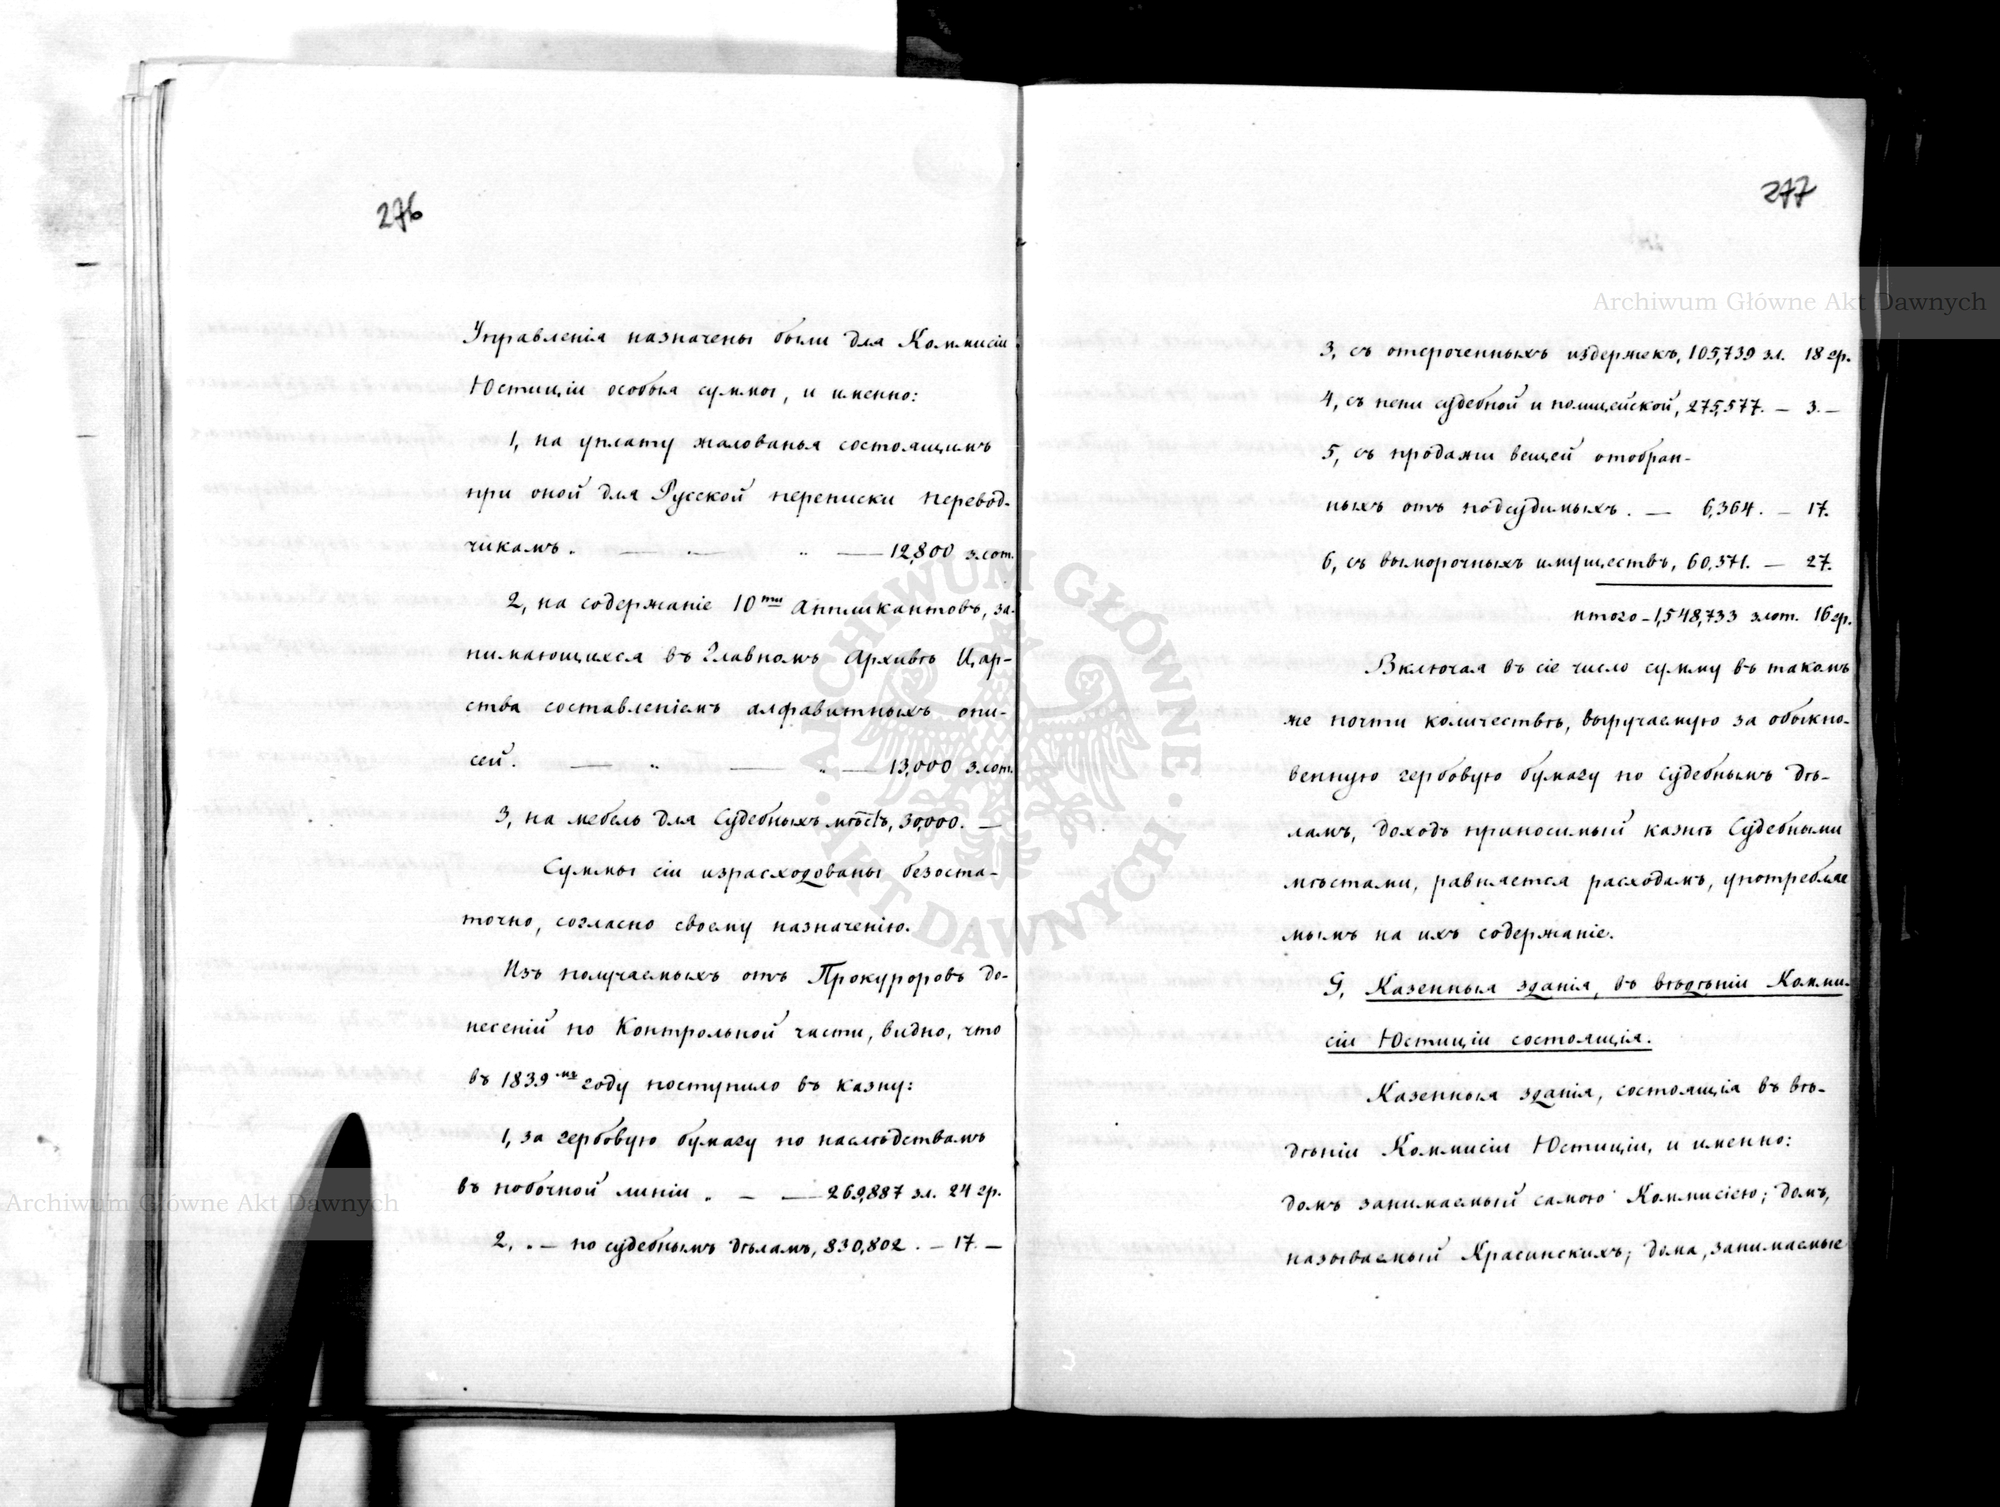 276
Управленія назначены были для Коммисіи
Юстиціи особыя суммы, и именно:
1, на уплату жалованья состоящимъ
при оной для Русской переписки перевод-
чикамъ. — . — „ — 12,800 злот.
2, на содержаніе 10ти Аппликантовъ, за-
нимающихся въ Главномъ Архивѣ Цар-
ства составленіемъ алфавитныхъ опи-
сей. — „ — „ — 13,000 злот.
3, на мебель для Судебныхъ мѣстъ, 30,000. —
Суммы сіи израсходованы безоста-
точно, согласно своему назначенію.
Изъ получаемыхъ отъ Прокуроровъ до-
несеній по Контрольной части, видно, что
въ 1839мъ году поступило въ казну:
1, за гербовую бумагу по наслѣдствамъ
въ побочной линіи . — — 269,887 зл. 24 гр.
2, . — по судебнымъ дѣламъ, 830,802 . — 17. —
277
3, съ отсроченныхъ издержекъ, 105,739 зл. 18 гр.
4, съ пени судебной и полицейской, 275,577. — 3. —
5, съ продажи вещей отобран-
ныхъ отъ подсудимыхъ . — 6,364. — 17.
6, съ выморочныхъ имуществъ, 60,371. — 27.
итого — 1,548,733 злот. 16 гр.
Включая въ сіе число сумму въ такомъ
же почти количествѣ, выручаемую за обыкно-
венную гербовую бумагу по судебнымъ дѣ-
ламъ, доходъ приносимый казнѣ Судебными
мѣстами, равняется расходамъ, употребляе
мымъ на ихъ содержаніе.
G, Казенныя зданія, въ вѣдѣніи Комми-
сіи Юстиціи состоящія.
Казенныя зданія, состоящія въ вѣ-
дѣніи Коммисіи Юстиціи, и именно:
домъ занимаемый самою Коммисіею; домъ,
называемый Красинскихъ; дома, занимаемые
Archiwum Główne Akt Dawnych
Archiwum Główne Akt Dawnych
ARCHIWUM GŁÓWNE AKT DAWNYCH